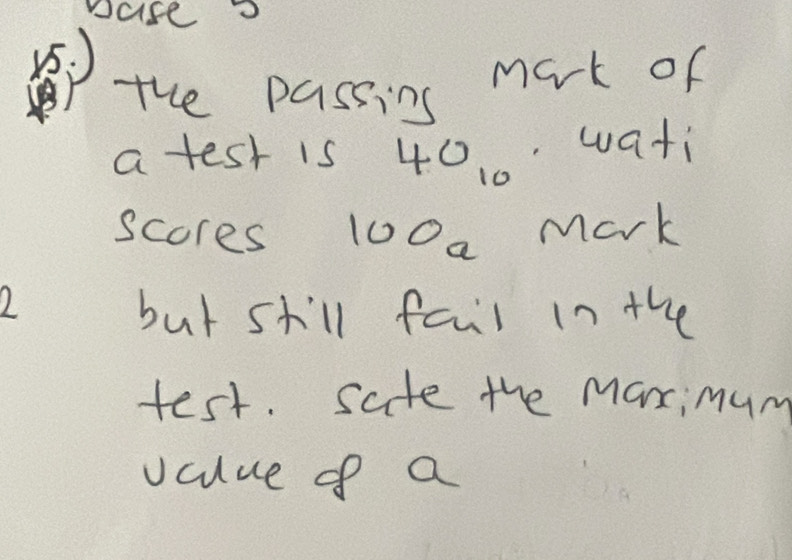 base 5
15.) The passing mark of
a test is 40₁₀. Wati
scores 100ₐ mark
2 but still fail in the
test. Sate the maximum
value of a